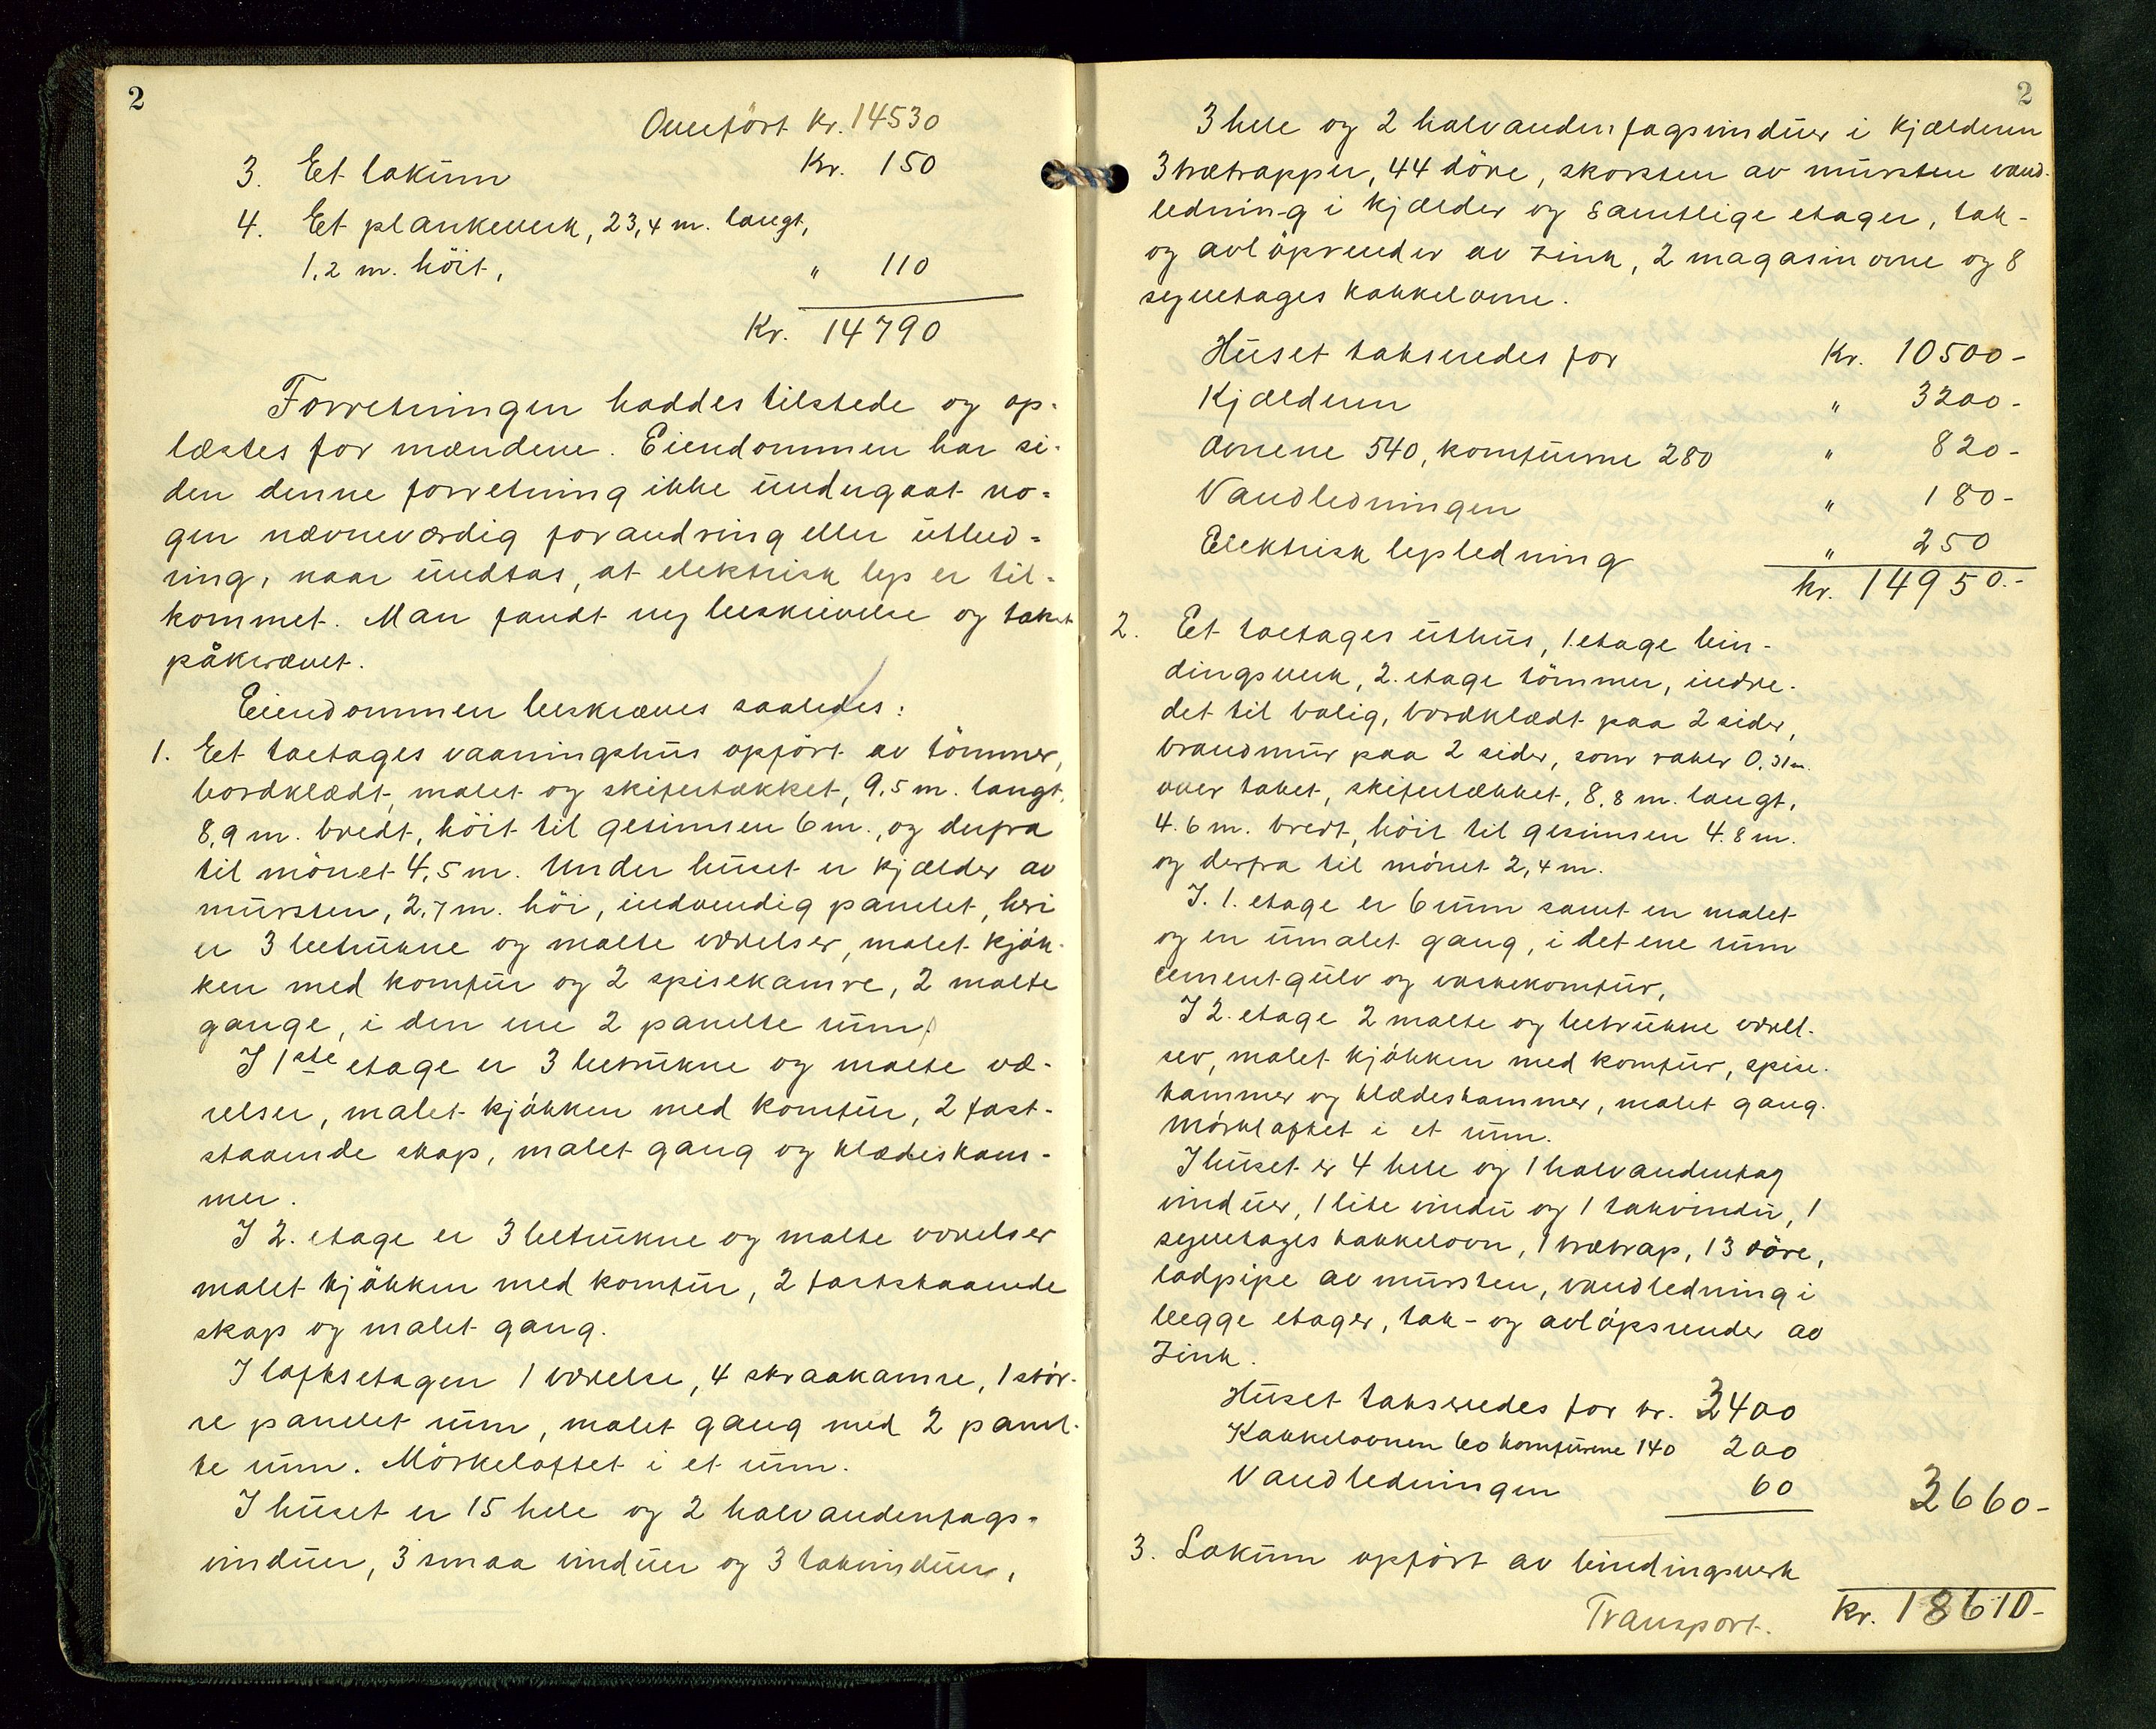 2
Overført Kr. 14530
3. Et lokum Kr. 150
4. Et plankeverk, 23,4 m. langt,
1,2 m. höit, " 110
Kr. 14790
Forretningen haddes tilstede og op-
læstes for mændene. Eiendommen har si-
den denne forretning ikke undergaat no-
gen nævneværdig forandring eller utbed-
ring, naar undtas, at elektrisk lys er til-
kommet. Man fandt ny beskrivelse og takst
påkrævet.
Eiendommen beskrives saaledes:
1. Et toetages vaaningshus opført av tömmer,
bordklædt, malet og skifertækket, 9,5 m. langt,
8,9 m. bredt, höit til gesimsen 6 m., og derfra
til mönet 4,5 m. Under huset er kjælder av
mursten, 2,7 m. höi, indvendig panelet, heri
er 3 betrukne og malte værelser, malet kjök-
ken med komfur og 2 spisekamre, 2 malte
gange, i den ene 2 panelte rum,
I 1ste etage er 3 betrukne og malte væ-
relser, malet kjökken med komfur, 2 fast-
staaende skap, malet gang og klædeskam-
mer.
I 2. etage er 3 betrukne og malte værelser
malet kjökken med komfur, 2 faststaaende
skap og malet gang.
I loftsetagen 1 værelse, 4 skraakamre, 1 stör-
re panelet rum, malet gang med 2 panel-
te rum. Mörkeloftet i et rum.
I huset er 15 hele og 2 halvandenfags-
vinduer, 3 smaa vinduer og 3 takvinduer,
2
3 hele og 2 halvandenfagsvinduer i kjælderen
3 trætrapper, 44 döre, skorsten av mursten vand-
ledning i kjælder og samtlige etager, tak-
og avlöpsrender av zink, 2 magasinovne og 8
syvetages kakkelovne.
Huset takseredes for Kr. 10500-
Kjælderen " 3200-
Ovnene 540, komfurene 280 " 820-
Vandledningen " 180-
Elektrisk lysledning " 250
kr. 14950.-
2. Et toetages uthus, 1. etage bin-
dingsverk, 2. etage tömmer, indre-
det til bolig, bordklædt paa 2 sider,
brandmur paa 2 sider, som raker 0,31 m.
over taket, skifertækket, 8,8 m. langt,
4.6 m. bredt, höit til gesimsen 4.8 m.
og derfra til mönet 2,4 m.
I. 1. etage er 6 rum samt en malet
og en umalet gang, i det ene rum
cementgulv og vaskekomfur,
I 2. etage 2 malte og betrukne værel-
ser, malet kjökken med komfur, spise-
kammer og klædeskammer, malet gang.
Mörkloftet i et rum.
I huset er 4 hele og 1 halvandenfag
vinduer, 1 lite vindu og 1 takvindu, 1
syvetages kakkelovn, 1 trætrap, 13 döre,
ladpipe av mursten, vandledning i
begge etager, tak- og avlöpsrender av
zink.
Huset takseredes for kr. 3400
Kakkelovnen 60 komfurene 140 200
Vandledningen 60 3660-
3. Lokum opført av bindingsverk
Transport. Kr. 18610-